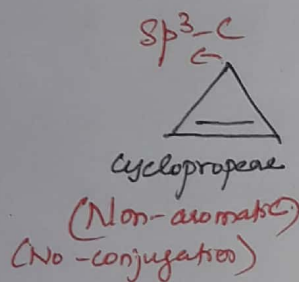 Sp³-C
cyclopropene
(Non-aromatic)
(No-conjugation)